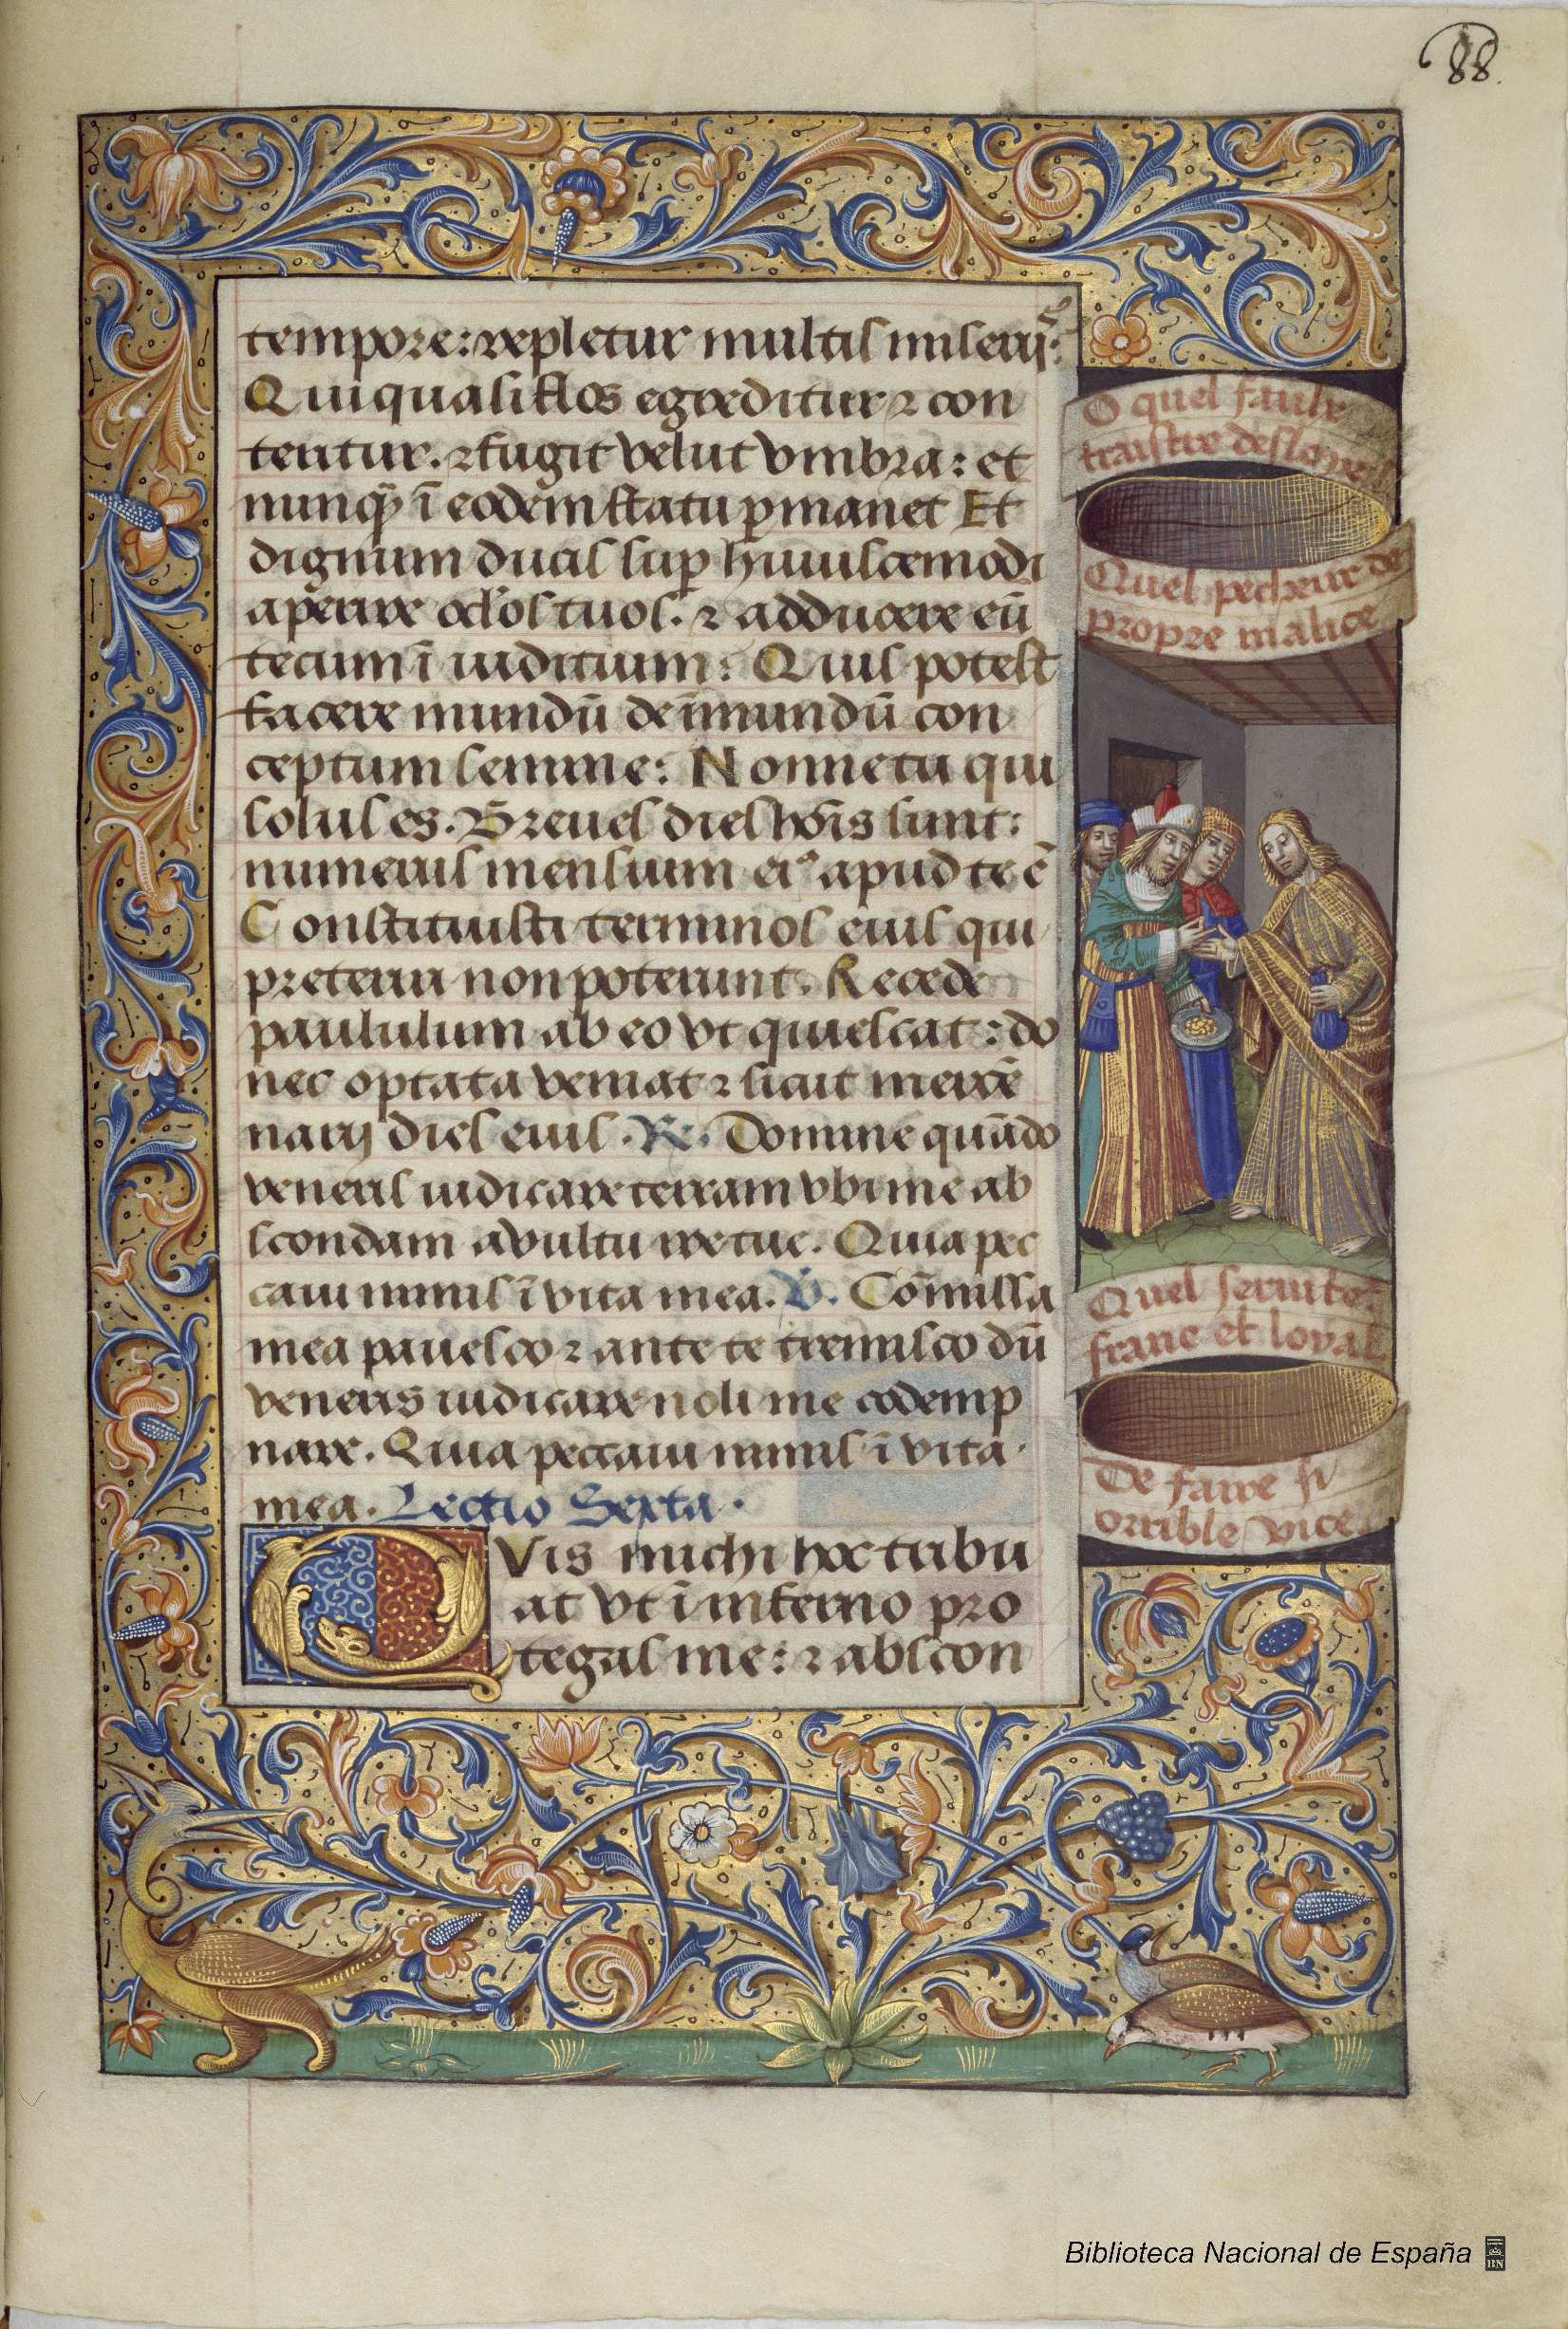 88.
tempore: repletur multis miserijs:
Qui quasi flos egreditur ⁊ con
teritur. ⁊ fugit velut vmbra: et
nunq̃ ĩ eodem statu ꝑmanet Et
dignum ducis suꝑ huiuscemodi
aperire oc̄l'os tuos. ⁊ adducere eũ
tecum ĩ iuditium: Quis potest
facere mundũ de ĩmundũ con
ceptum semine: Nonne tu qui
solus es. Breues dies hõis sunt:
numerus mensium ei⁹ apud te ẽ
Constituisti terminos eius qui
preteriri non poterunt. Recede
paululum ab eo vt quiescat: do
nec optata veniat ⁊ sicut mercẽ
narij dies eius. ℟. Domine quãdo
veneris iudicare terram vbi me ab
scondam a vultu ire tue. Quia pec
caui nimis ĩ vita mea. ℣. Cõmissa
mea pauesco ⁊ ante te tremisco dũ
veneris iudicare noli me codemp
nare. Quia peccaui nimis ĩ vita
mea. Lectio Sexta.
QVis michi hoc tribu
at vt ĩ inferno pro
tegas me: ⁊ abscon
O quel faulx
traistre desloyal
Quel pecheur de
propre malice
Quel seruite
franc et loyal
De faire si
orrible vice
Biblioteca Nacional de España
BN